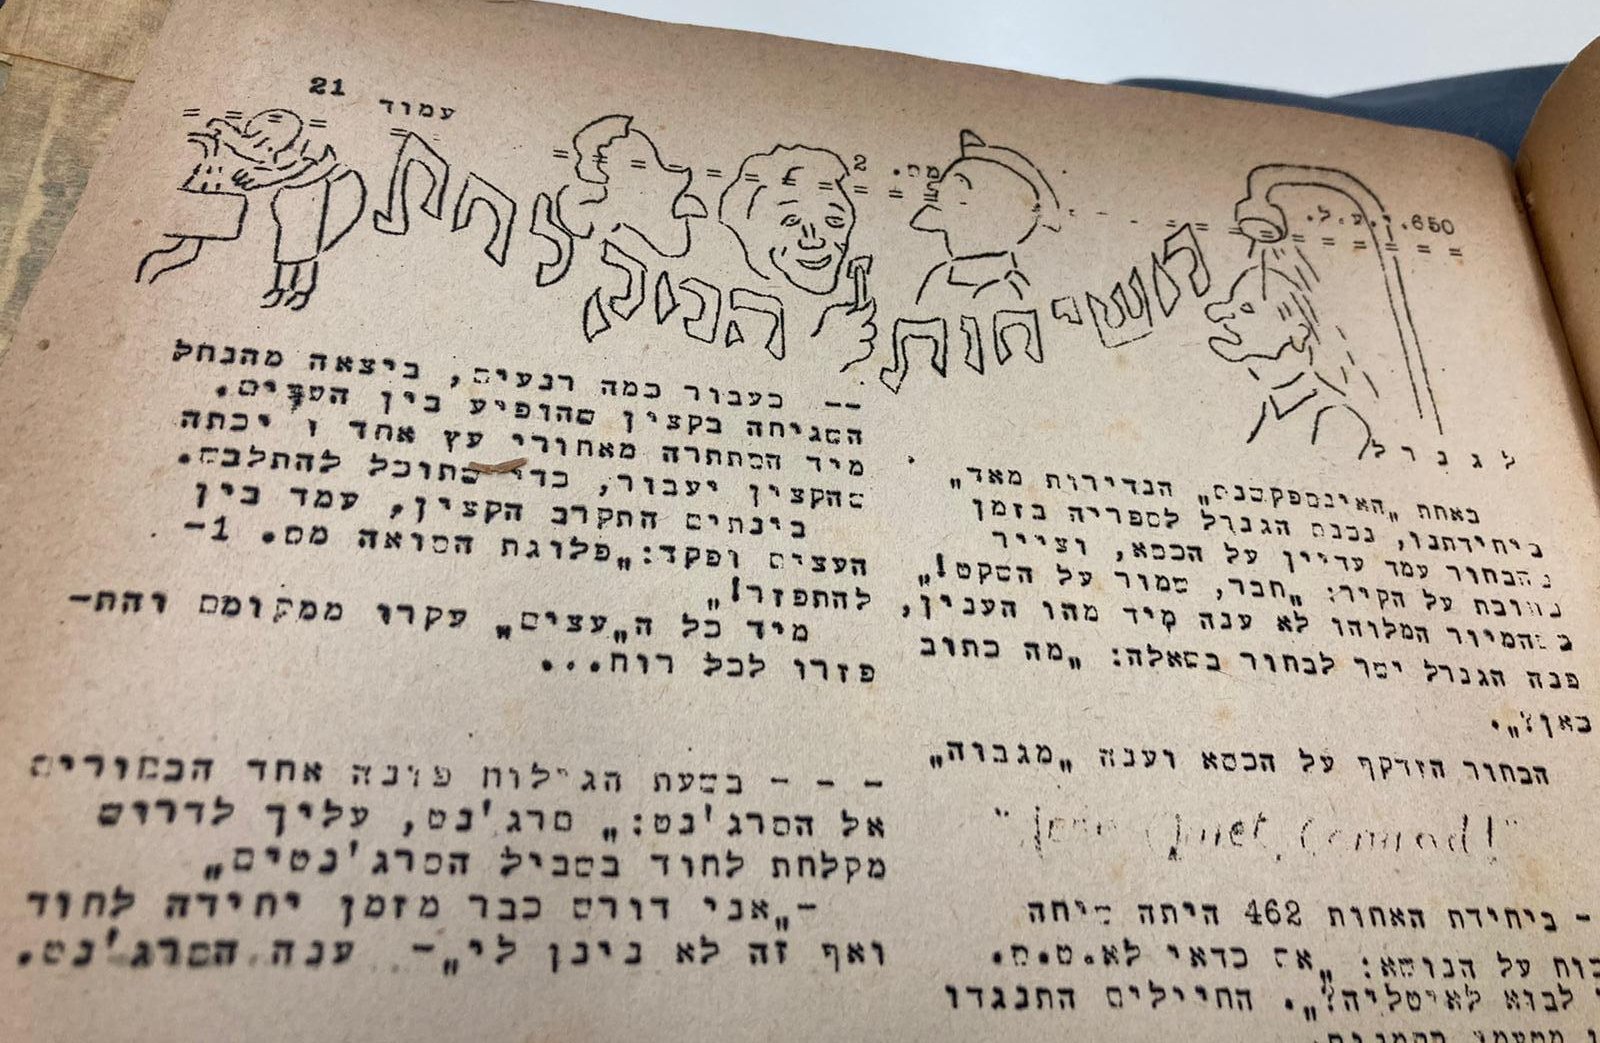 עמוד 21
מס. 2
י.ע.ל. 650.
תושיחות הניק נצחת
לגנרל
באחת „האינספקשנס„ הנדירות מאד
ביחידתנו, נכנס הגנרל לספריה בזמן
שהבחור עמד עדיין על הכסא, וצייר
כתובת על הקיר: „חבר, שמור על השקט!„
כשהמיור המלוהו לא ענה מיד מהו הענין,
פנה הגנרל ישר לבחור בשאלה: „מה כתוב
כאן?„.
הבחור הזדקף על הכסא וענה „מגבוה„
"Quiet, Comrod!"
- ביחידת האחות 462 היתה שיחה
על הנושא: „אם כדאי לא.ט.ס.
לבוא לאיטליה?„. החיילים התנגדו
-- כעבור כמה רגעים, ביצאה מהנחל
השגיחה בקצין שהופיע בין העצים.
מיד הסתתרה מאחורי עץ אחד ו יכתה
שהקצין יעבור, כדי שתוכל להתלבש.
בינתים התקרב הקצין, עמד בין
העצים ופקד: „פלוגת הסואה מס. 1-
להתפזר!„
מיד כל ה„עצים„ עקרו ממקומם והת-
פזרו לכל רוח...
- - - בשעת הגילוח פונה אחד הבחורים
אל הסרג'נט: „ סרג'נט, עליך לדרוש
מקלחת לחוד בשביל הסרג'נטים„
-„אני דורש כבר מזמן יחידה לחוד
ואף זה לא נינן לי„- ענה הסרג'נט.